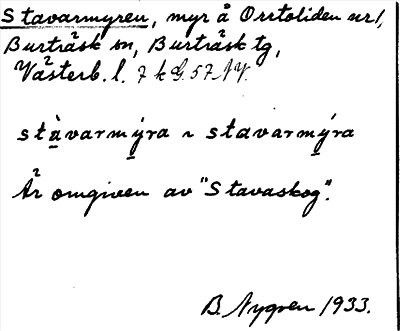 Stavarmyren, myr å Orrtoliden nr 1,
Burträsk sn, Burträsk tg,
Västerb. l. 7 k G. 57 NV.
stàvarmýra ~ stavarmýra
Är omgiven av "Stavaskog".
B. Nygren 1933.